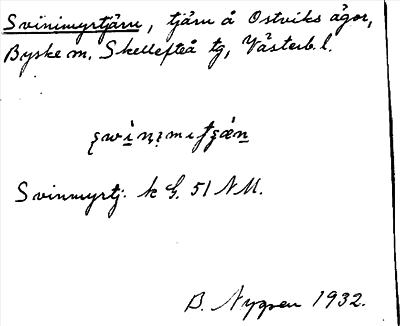 Svinimyrtjärn, tjärn å Ostviks ägor,
Byske sn. Skellefteå tg, Västerb. l.
Svinmyrtj. k G. 51 NU.
B. Nygren 1932.